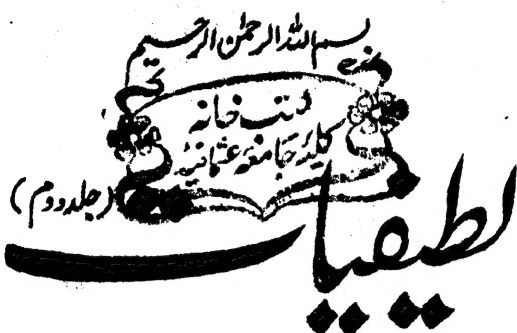 بسم اللہ الرحمٰن الرحیم
کتب خانہ
کلیۂ جامعہ عثمانیہ
(جلد دوم)
لطیفیات